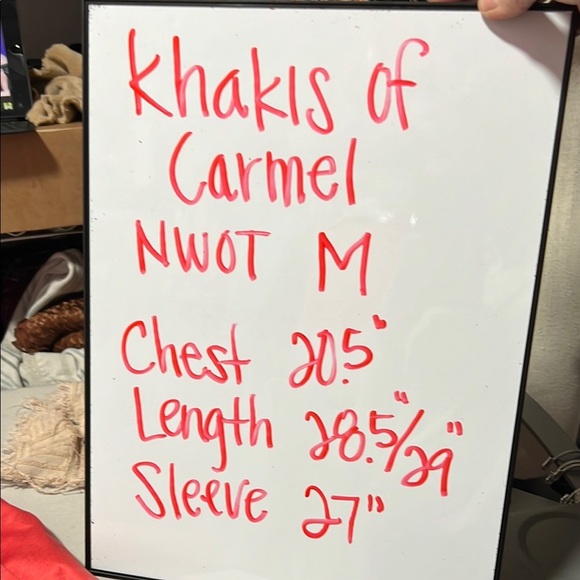 Khakis of
Carmel
NWOT M
Chest 20.5"
Length 28.5"/29"
Sleeve 27"